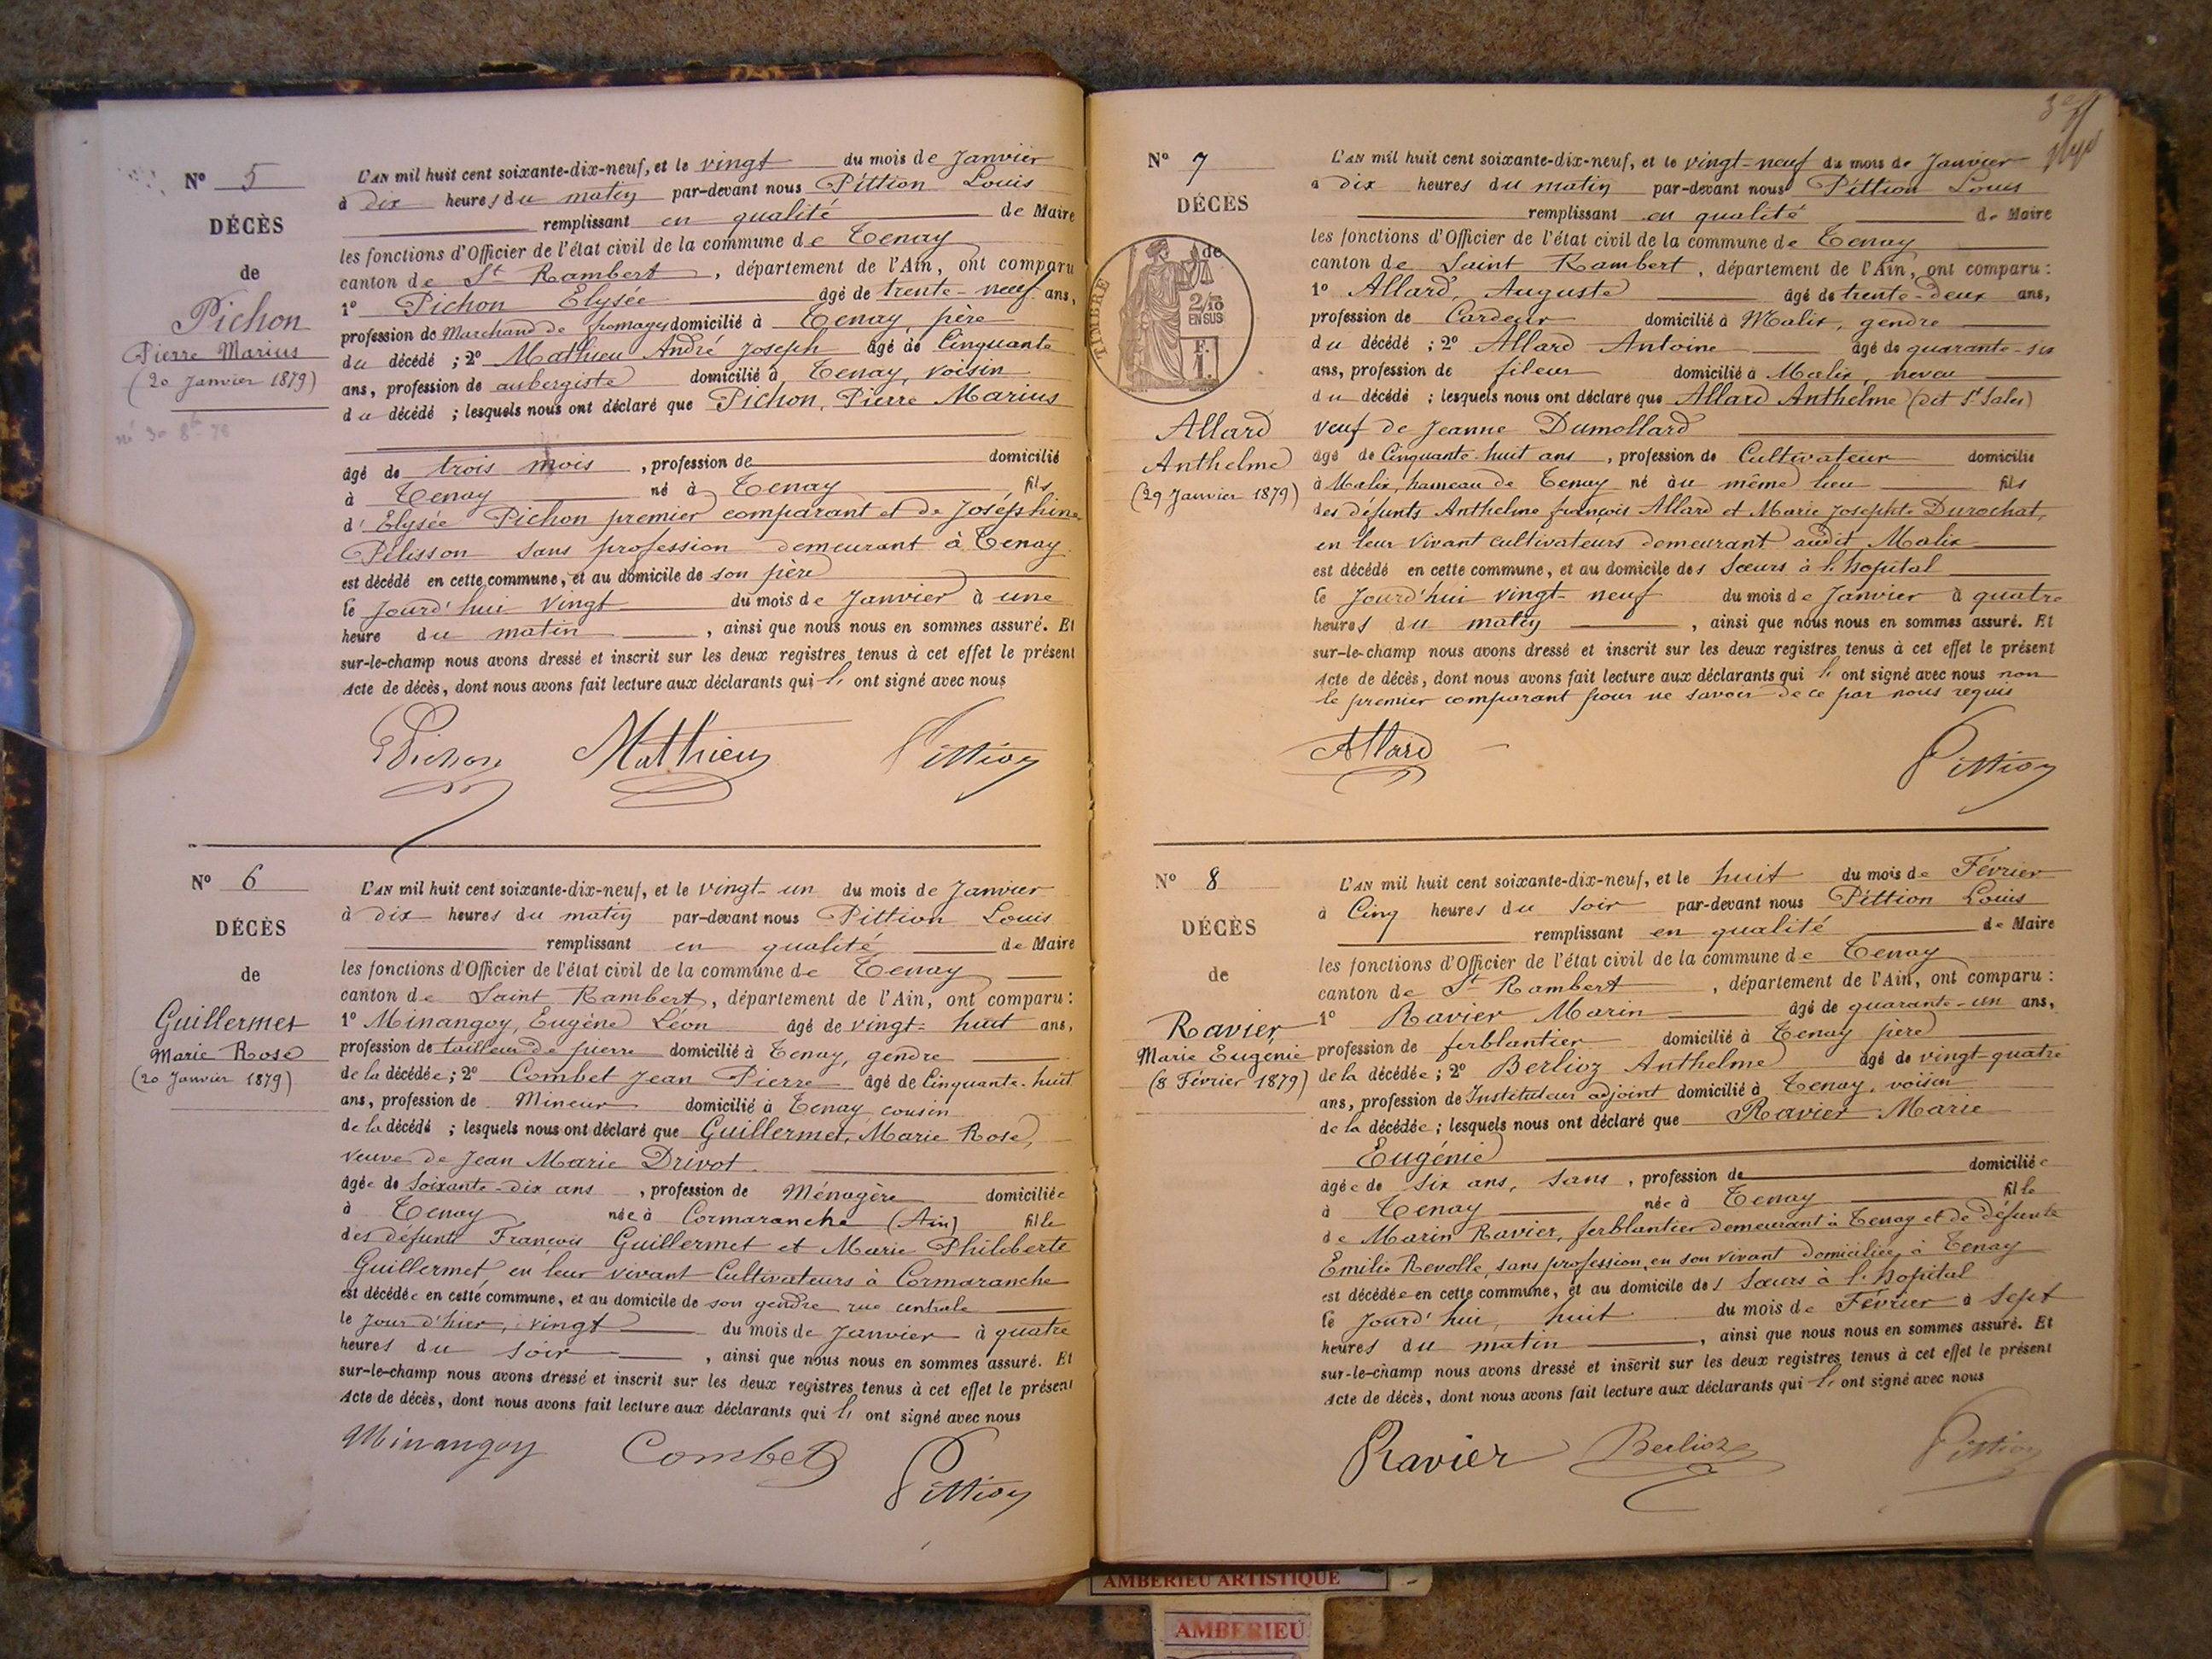 Nº 5
DÉCÈS
de
Pichon
Pierre Marius
(20 Janvier 1879)
né 30 8bre 78
L'AN mil huit cent soixante-dix-neuf, et le vingt du mois de Janvier
à dix heures du matin par-devant nous Pittion Louis
remplissant en qualité de Maire
les fonctions d'Officier de l'état civil de la commune de Tenay
canton de St Rambert, département de l'Ain, ont comparu
1º Pichon Elysée âgé de trente-neuf ans,
profession de Marchand de fromages domicilié à Tenay, père
du décédé ; 2º Mathieu André Joseph âgé de Cinquante
ans, profession de aubergiste domicilié à Tenay, voisin
du décédé ; lesquels nous ont déclaré que Pichon, Pierre Marius
âgé de trois mois, profession de domicilié
à Tenay né à Tenay fils
d'Elysée Pichon premier comparant et de Joséphine
Pélisson sans profession demeurant à Tenay
est décédé en cette commune, et au domicile de son père
le jourd'hui vingt du mois de Janvier à une
heure du matin, ainsi que nous nous en sommes assuré. Et
sur-le-champ nous avons dressé et inscrit sur les deux registres tenus à cet effet le présent
Acte de décès, dont nous avons fait lecture aux déclarants qui ls ont signé avec nous
EPichon Matthieu Pittion
Nº 6
DÉCÈS
de
Guillermet
Marie Rose
(20 Janvier 1879)
L'AN mil huit cent soixante-dix-neuf, et le vingt-un du mois de Janvier
à dix heures du matin par-devant nous Pittion Louis
remplissant en qualité de Maire
les fonctions d'Officier de l'état civil de la commune de Tenay
canton de Saint Rambert, département de l'Ain, ont comparu :
1º Minangoy, Eugène Léon âgé de vingt-huit ans,
profession de tailleur de pierre domicilié à Tenay, gendre
de la décédée ; 2º Combet Jean Pierre âgé de Cinquante-huit
ans, profession de Mineur domicilié à Tenay cousin
de la décédé ; lesquels nous ont déclaré que Guillermet, Marie Rose,
veuve de Jean Marie Drivot
âgée de Soixante-dix ans, profession de Ménagère domiciliée
à Tenay née à Cormaranche (Ain) fille
des défunts François Guillermet et Marie Philiberte
Guillermet en leur vivant Cultivateurs à Cormaranche
est décédée en cette commune, et au domicile de son gendre rue centrale
le jour d'hier, vingt du mois de Janvier à quatre
heures du soir, ainsi que nous nous en sommes assuré. Et
sur-le-champ nous avons dressé et inscrit sur les deux registres tenus à cet effet le présent
Acte de décès, dont nous avons fait lecture aux déclarants qui ls ont signé avec nous
Minangoy Combet
Pittion
Nº 7
DÉCÈS
de
TIMBRE
2/10
EN SUS
F.
1.
Allard
Anthelme
(29 Janvier 1879)
L'AN mil huit cent soixante-dix-neuf, et le vingt-neuf du mois de Janvier
à dix heures du matin par-devant nous Pittion Louis
remplissant en qualité de Maire
les fonctions d'Officier de l'état civil de la commune de Tenay
canton de Saint Rambert, département de l'Ain, ont comparu :
1º Allard, Auguste âgé de trente-deux ans,
profession de Cardeur domicilié à Malix, gendre
du décédé ; 2º Allard Antoine âgé de quarante-six
ans, profession de fileur domicilié à Malix, neveu
du décédé ; lesquels nous ont déclaré que Allard Anthelme (dit St Sales)
veuf de Jeanne Dumollard
âgé de Cinquante-huit ans, profession de Cultivateur domicilié
à Malix, hameau de Tenay né au même lieu fils
des défunts Anthelme françois Allard et Marie Josephte Durochat,
en leur vivant cultivateurs demeurant audit Malix
est décédé en cette commune, et au domicile des Sœurs à l'hopital
le jourd'hui vingt-neuf du mois de Janvier à quatre
heures du matin, ainsi que nous nous en sommes assuré. Et
sur-le-champ nous avons dressé et inscrit sur les deux registres tenus à cet effet le présent
Acte de décès, dont nous avons fait lecture aux déclarants qui ls ont signé avec nous non
le premier comparant pour ne savoir de ce par nous requis
Allard Pittion
Nº 8
DÉCÈS
de
Ravier,
Marie Eugénie
(8 Février 1879)
L'AN mil huit cent soixante-dix-neuf, et le huit du mois de Février
à Cinq heures du soir par-devant nous Pittion Louis
remplissant en qualité de Maire
les fonctions d'Officier de l'état civil de la commune de Tenay
canton de St Rambert, département de l'Ain, ont comparu :
1º Ravier Marin âgé de quarante-un ans,
profession de ferblantier domicilié à Tenay père
de la décédée ; 2º Berlioz Anthelme âgé de vingt-quatre
ans, profession de Instituteur adjoint domicilié à Tenay, voisin
de la décédée ; lesquels nous ont déclaré que Ravier Marie
Eugénie
âgée de six ans, sans, profession de domiciliée
à Tenay née à Tenay fille
de Marin Ravier, ferblantier demeurant à Tenay et de défunte
Emilie Revolle, sans profession, en son vivant domiciliée à Tenay
est décédée en cette commune, et au domicile des Sœurs à l'hopital
le jourd'hui, huit du mois de Février à sept
heures du matin, ainsi que nous nous en sommes assuré. Et
sur-le-champ nous avons dressé et inscrit sur les deux registres tenus à cet effet le présent
Acte de décès, dont nous avons fait lecture aux déclarants qui ls ont signé avec nous
Ravier Berlioz Pittion
AMBERIEU ARTISTIQUE
AMBERIEU